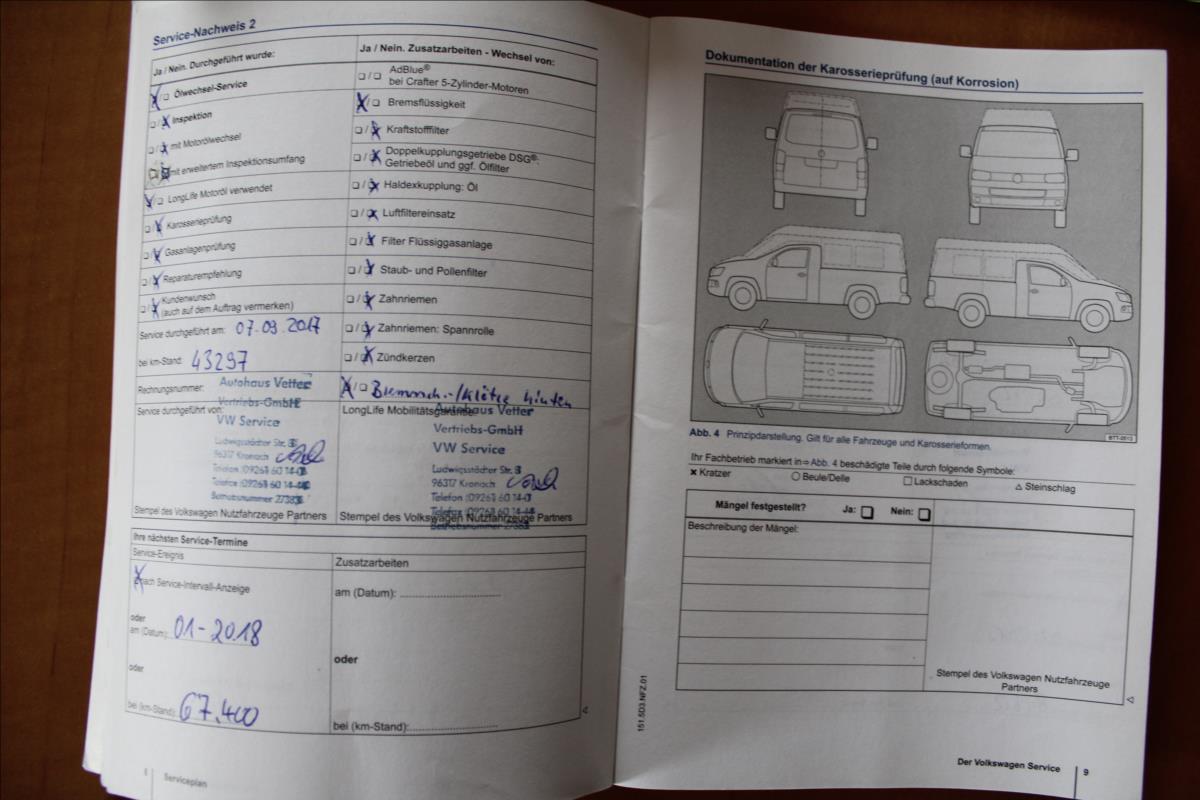 Service-Nachweis 2
Ja / Nein. Durchgeführt wurde:
☒/❑ Ölwechsel-Service
❑/☒ Inspektion
❑/☒ mit Motorölwechsel
mit erweitertem Inspektionsumfang
☒/❑ LongLife Motoröl verwendet
❑/☒ Karosserieprüfung
❑/☒ Gasanlagenprüfung
❑/☒ Reparaturempfehlung
❑/☒ Kundenwunsch
(auch auf dem Auftrag vermerken)
Service durchgeführt am: 07.09.2017
bei km-Stand: 43297
Rechnungsnummer:
Service durchgeführt von:
Autohaus Vetter
Vertriebs-GmbH
VW Service
Ludwigsstädter Str. 3
96317 Kronach
Telefon (09261) 60 14-0
Telefax (09261) 60 14-44
Betriebsnummer 27383
Stempel des Volkswagen Nutzfahrzeuge Partners
Ja / Nein. Zusatzarbeiten - Wechsel von:
❑/❑ AdBlue®
bei Crafter 5-Zylinder-Motoren
☒/❑ Bremsflüssigkeit
❑/☒ Kraftstofffilter
❑/☒ Doppelkupplungsgetriebe DSG®:
Getriebeöl und ggf. Ölfilter
❑/☒ Haldexkupplung: Öl
❑/☒ Luftfiltereinsatz
❑/☒ Filter Flüssiggasanlage
❑/☒ Staub- und Pollenfilter
❑/☒ Zahnriemen
❑/☒ Zahnriemen: Spannrolle
❑/☒ Zündkerzen
☒/❑ Bremssch.-/Klötze hinten
LongLife Mobilitätsgarantie:
Autohaus Vetter
Vertriebs-GmbH
VW Service
Ludwigsstädter Str. 3
96317 Kronach
Telefon (09261) 60 14-0
Telefax (09261) 60 14-44
Betriebsnummer 27383
Stempel des Volkswagen Nutzfahrzeuge Partners
Ihre nächsten Service-Termine
Service-Ereignis
☒ nach Service-Intervall-Anzeige
oder
am (Datum): 01-2018
oder
bei (km-Stand): 67.400
Zusatzarbeiten
am (Datum): ........................
oder
bei (km-Stand): ........................
Serviceplan
Dokumentation der Karosserieprüfung (auf Korrosion)
BTT-0513
Abb. 4 Prinzipdarstellung. Gilt für alle Fahrzeuge und Karosserieformen.
Ihr Fachbetrieb markiert in ⇨ Abb. 4 beschädigte Teile durch folgende Symbole:
✖ Kratzer ○ Beule/Delle □ Lackschaden △ Steinschlag
Mängel festgestellt? Ja: ❑ Nein: ❑
Beschreibung der Mängel:
Stempel des Volkswagen Nutzfahrzeuge
Partners
151.5D3.NFZ.01
Der Volkswagen Service 9